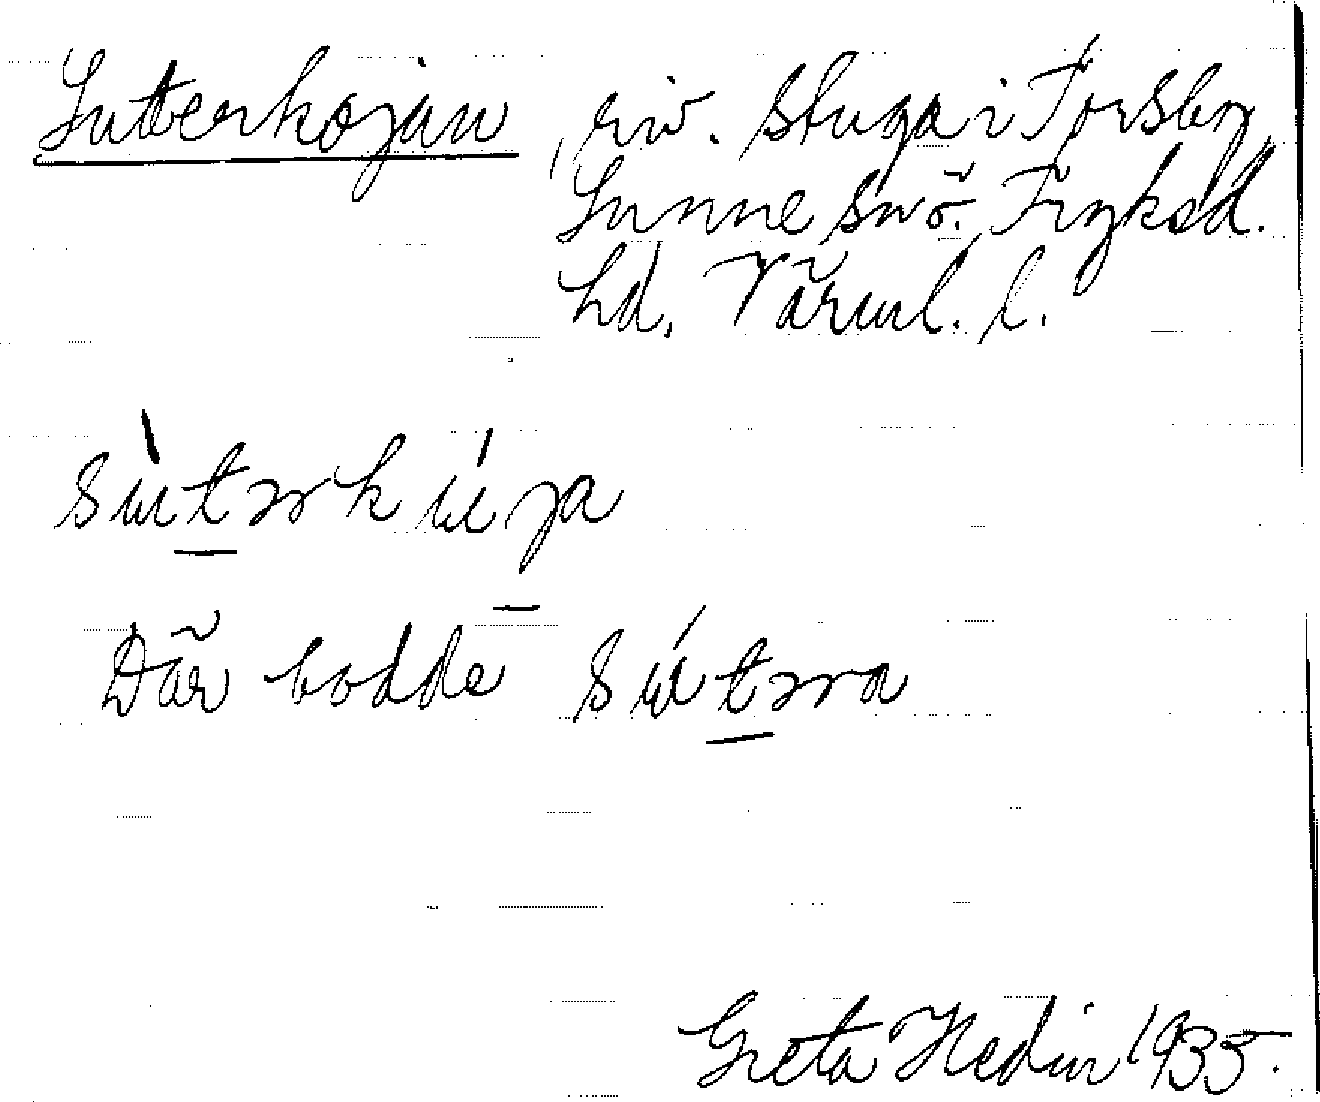 Sutterkojan, riv. stuga i Torsby,
Sunne snö. Fryksd.
hd. Värml. l.
sùtərkúja
Där bodde sútəra
Greta Hedin 1935.